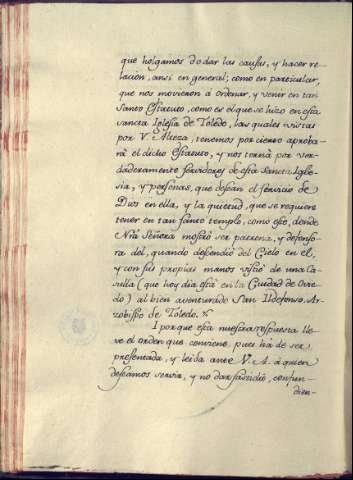 que holgamos do dar las causas, y hacer re-
lacion, ansi en general; como en particular,
que nos movieron á ordenar, y venir en tan
Santo Estatuto, como es el que se hizo en esta
sancta Iglesia de Toledo, las quales vistas
por V. Alteza, tenemos por cierto aproba-
rá el dicho Estatuto, y nos terná por ver-
daderamente servidores de esta Sancta Igle-
sia, y personas, que desean el servicio de
Dios en ella, y la quietud, que se requiere
tener en tan sancto templo, como este, donde
Nrã Señora mostró ser patrona, y defenso-
ra del, quando descendió del Cielo en el,
y con sus propias manos vistió de una Ca-
sulla (que hoy dia está en la Ciudad de Ovie-
do) al bien aventurado San Ildefonso, Ar-
zobispo de Toledo.
I porque esta nuestra respuesta lle-
ve el orden que conviene, pues há de ser
presentada, y leida ante V. A. á quien
deseamos servir, y no dar fastidio, confun-
dien-